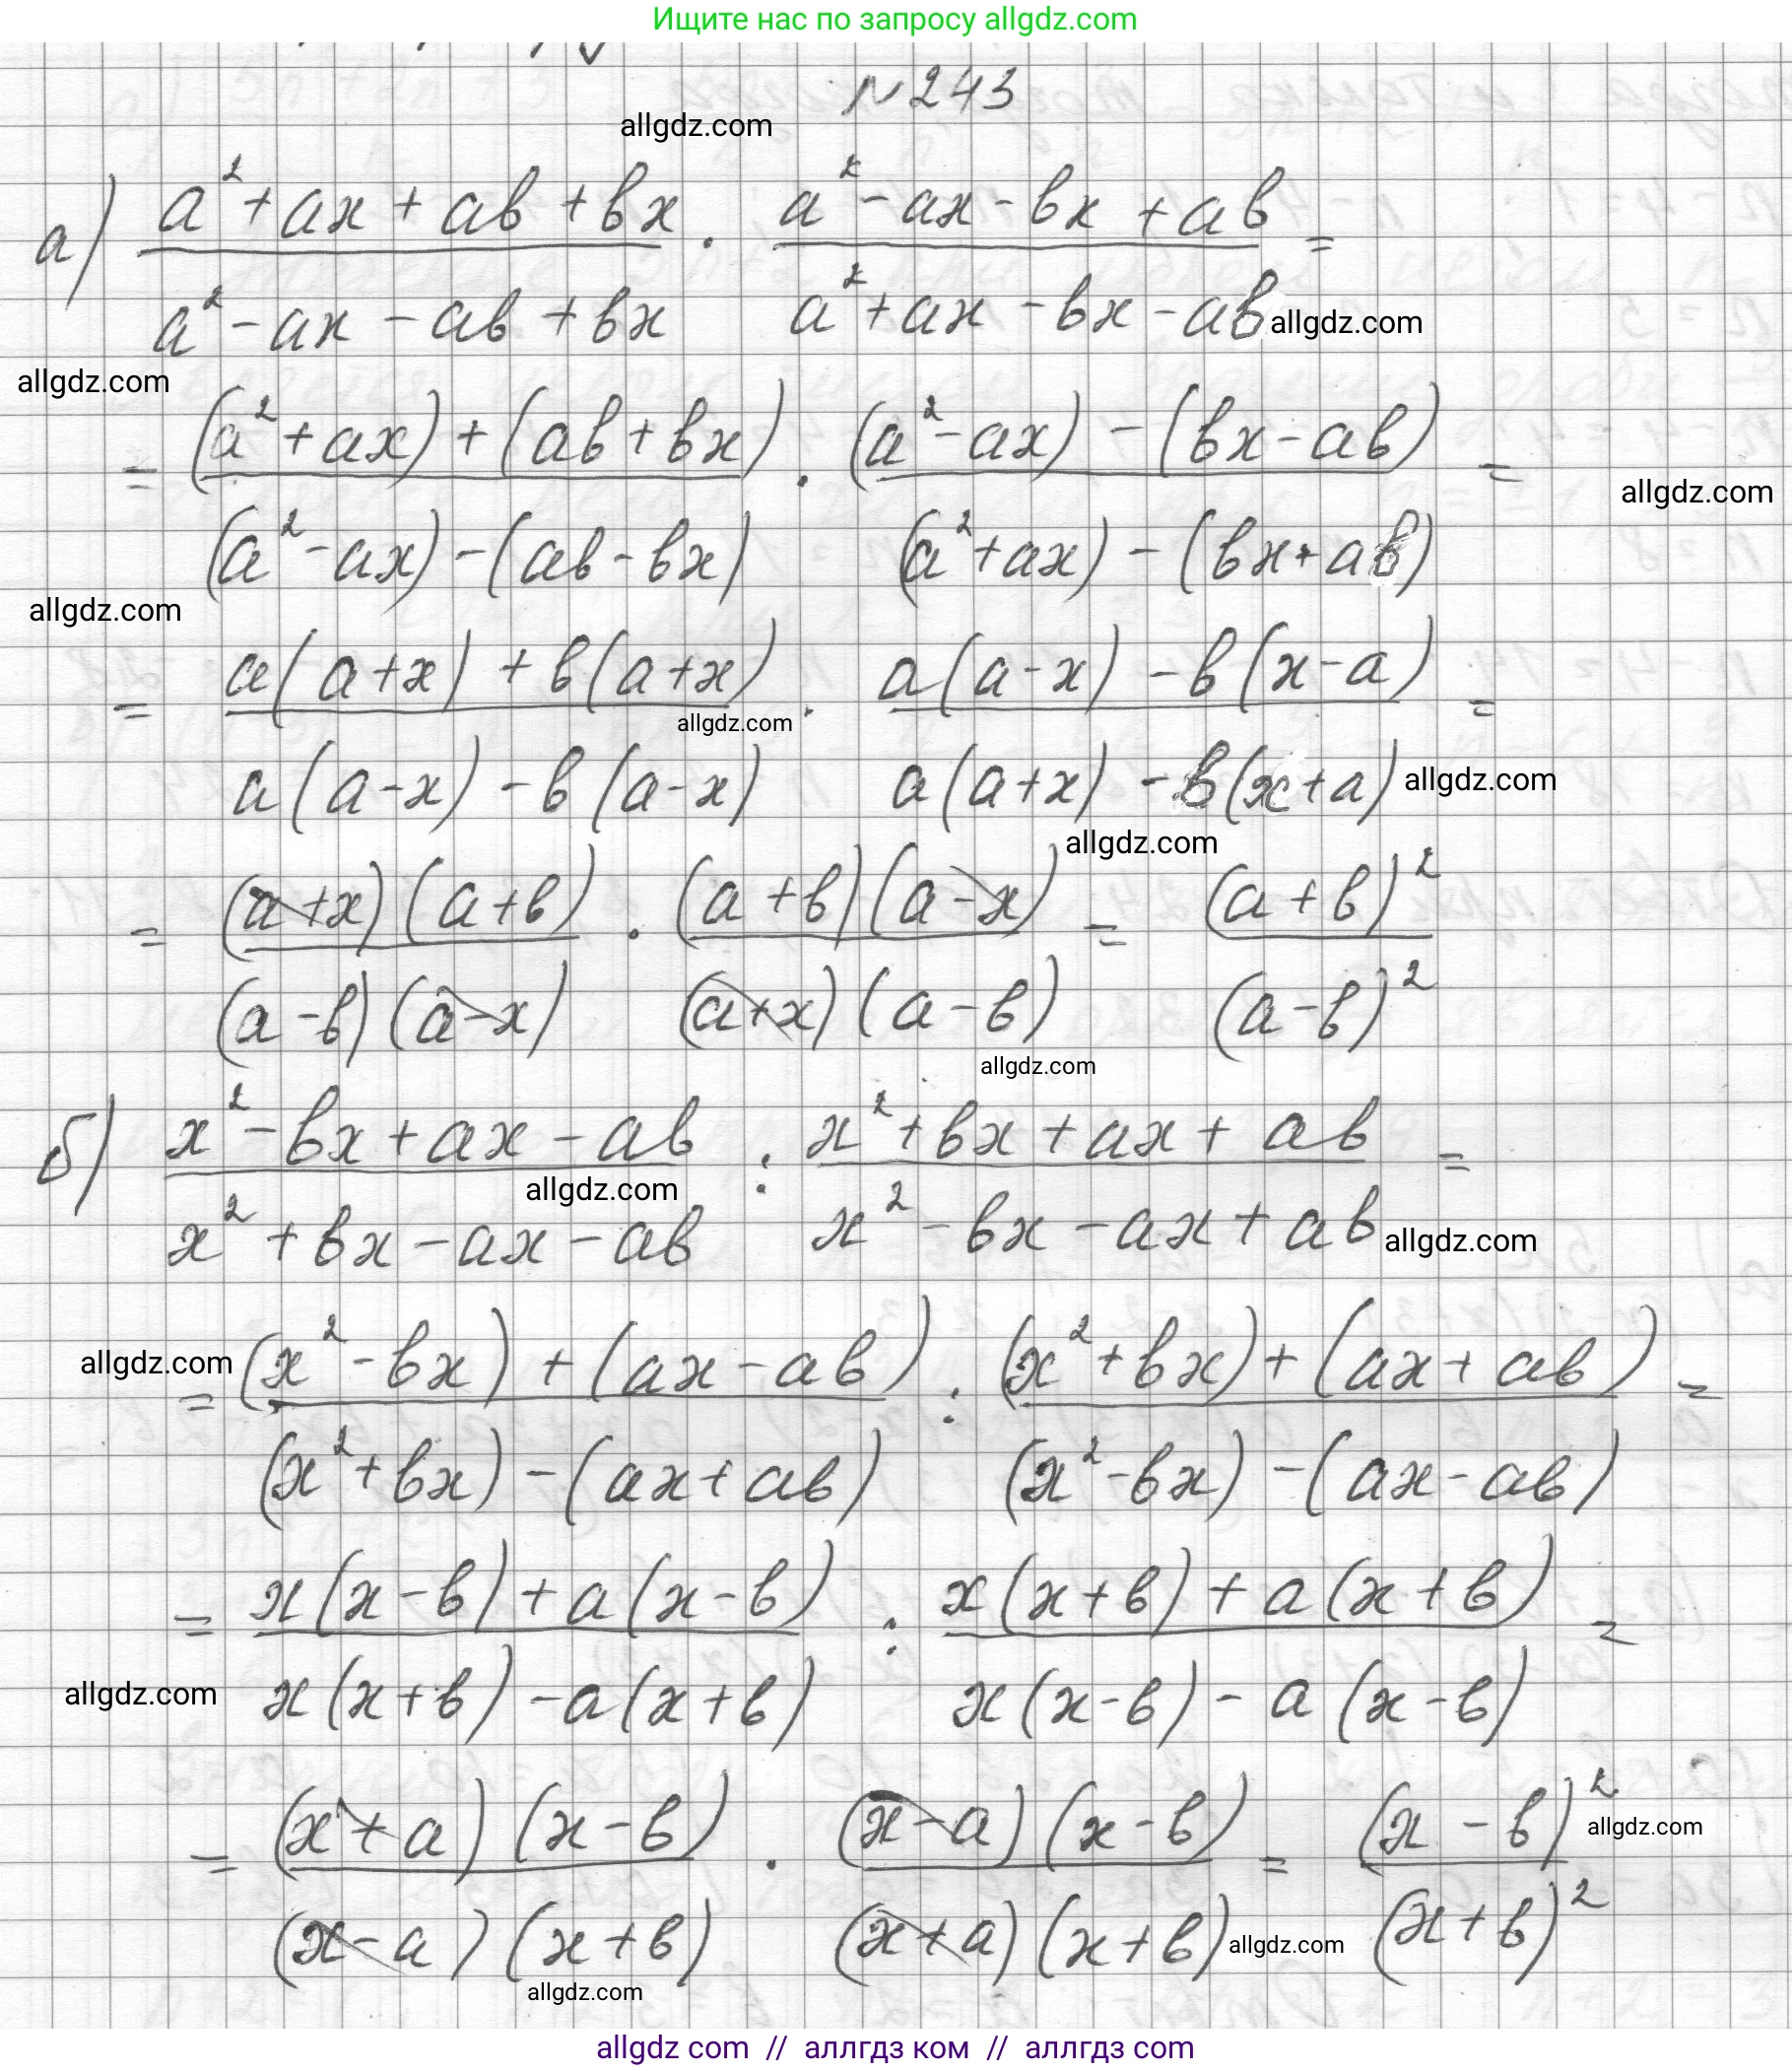 Ищите нас по запросу allgdz.com
N 243
allgdz.com
а) (a² + ax + ab + bx)/(a² - ax - ab + bx) · (a² - ax - bx + ab)/(a² + ax - bx - ab) =
allgdz.com
allgdz.com
= ((a² + ax) + (ab + bx))/((a² - ax) - (ab - bx)) · ((a² - ax) - (bx - ab))/((a² + ax) - (bx + ab)) =
allgdz.com
allgdz.com
= (a(a+x) + b(a+x))/(a(a-x) - b(a-x)) · (a(a-x) - b(x-a))/(a(a+x) - b(x+a))
=
allgdz.com
allgdz.com
allgdz.com
= ((a+x)(a+b))/((a-b)(a-x)) · ((a+b)(a-x))/((a+x)(a-b)) = (a+b)²/(a-b)²
allgdz.com
б) (x² - bx + ax - ab)/(x² + bx - ax - ab) : (x² + bx + ax + ab)/(x² - bx - ax + ab) =
allgdz.com
allgdz.com
allgdz.com
= ((x² - bx) + (ax - ab))/((x² + bx) - (ax + ab)) : ((x² + bx) + (ax + ab))/((x² - bx) - (ax - ab)) =
= (x(x-b) + a(x-b))/(x(x+b) - a(x+b)) : (x(x+b) + a(x+b))/(x(x-b) - a(x-b)) =
allgdz.com
= ((x+a)(x-b))/((x-a)(x+b)) · ((x-a)(x-b))/((x+a)(x+b)) = (x-b)²/(x+b)²
allgdz.com
allgdz.com
allgdz.com
allgdz com // аллгдз ком // аллгдз com